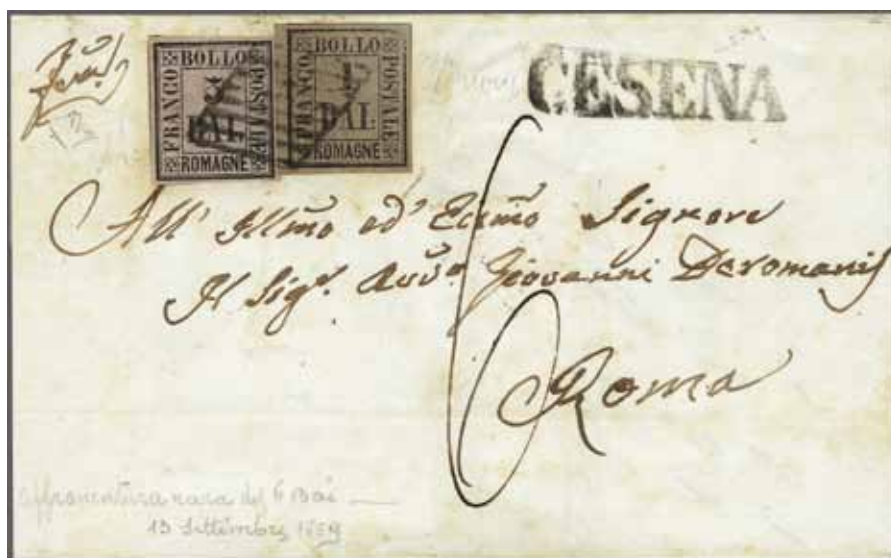 Franca
FRANCO BOLLO POSTALE
5
BAI.
ROMAGNE
FRANCO BOLLO POSTALE
1
BAI.
ROMAGNE
CESENA
All' Illmo ed' Eccmo Signore
Il Sigr. Avvo. Giovanni Deromanis
6
Roma
affrancatura rara del 6 Bai
13 Settembre 1859